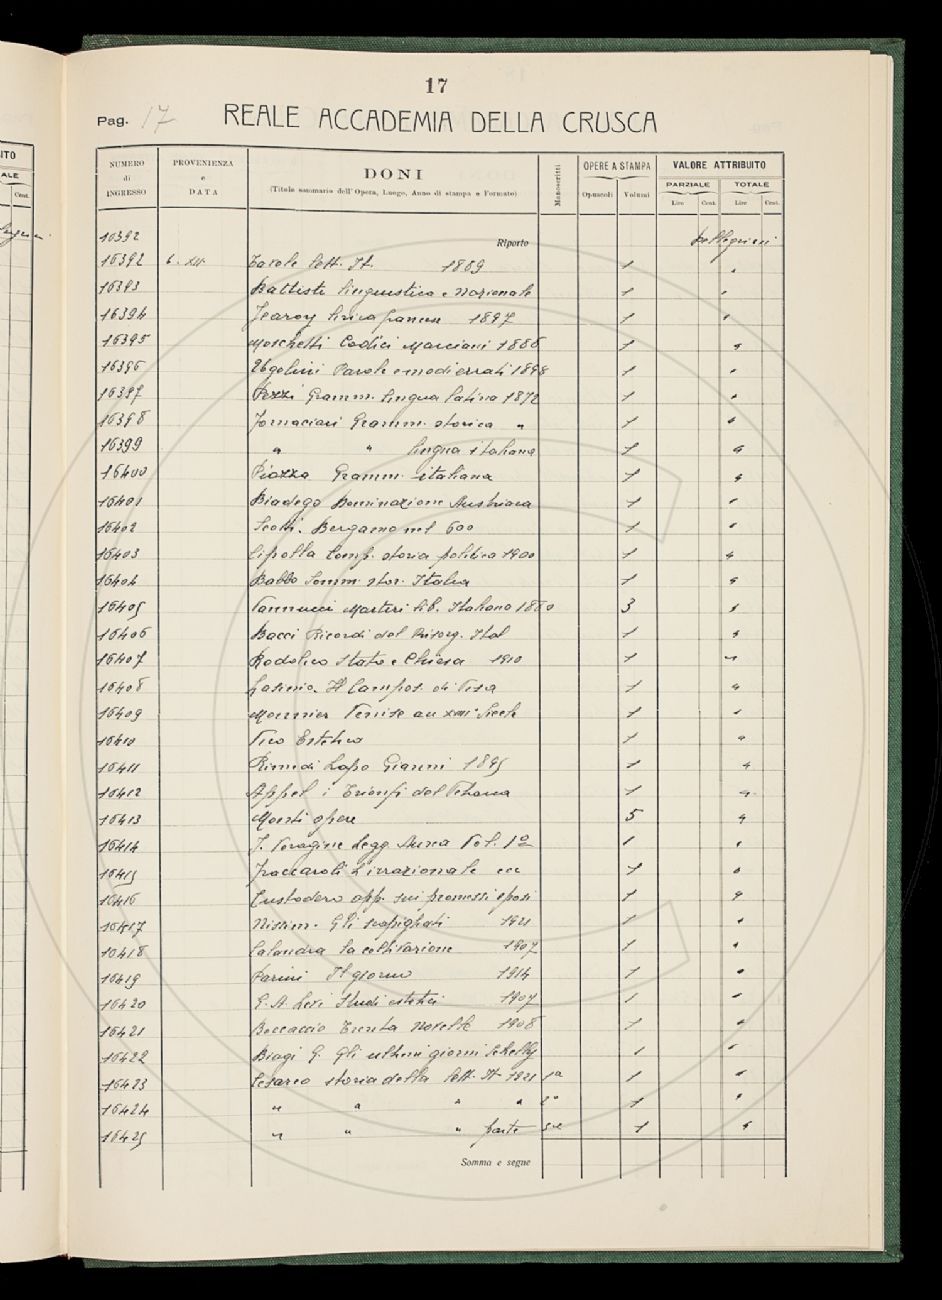 17
Pag. 17 REALE ACCADEMIA DELLA CRUSCA
NUMERO di INGRESSO PROVENIENZA e DATA DONI (Titolo sommario dell'Opera, Luogo, Anno di stampa e Formato) Manoscritti OPERE A STAMPA Opuscoli Volumi VALORE ATTRIBUITO PARZIALE Lire Cent. TOTALE Lire Cent.
16392 Riporto
16392 6. XII. Tavole lett. It. 1889 1 "
16393 Battisti linguistica e nazionale 1 "
16394 Jearoy lirica francese 1897 1 "
16395 Moschetti Codici Marciani 1888 1 "
16396 Ugolini Parole e modi errati 1898 1 "
16397 Pezzi Gramm. lingua latina 1872 1 "
16398 Fornaciari Gramm. storica " 1 "
16399 " " lingua italiana 1 "
16400 Piazza Gramm. italiana 1 "
16401 Biadego Dominazione Austriaca 1 "
16402 Scotti. Bergamo nel 600 1 "
16403 Cipolla Comp. storia politica 1900 1 "
16404 Balbo Somm. stor. Italia 1 "
16405 Vannucci Martiri lib. Italiana 1880 3 "
16406 Bacci Ricordi del Risorg. Ital 1 "
16407 Rodolico Stato e Chiesa 1910 1 "
16408 Lasinio. Il Campos. di Pisa 1 "
16409 Monnier Venise au XVIII Siecle 1 "
16410 Vico Estetico 1 "
16411 Rime di Lapo Gianni 1895 1 "
16412 Appel i Trionfi del Petrarca 1 "
16413 Monti opere 5 "
16414 J. Voragine Legg. Aurea Vol. 1º 1 "
16415 Fraccaroli L'irrazionale ecc 1 "
16416 Custodero app. sui promessi sposi 1 "
16417 Nissim. Gli scapigliati 1921 1 "
16418 Calandra la coltivazione 1907 1 "
16419 Parini Il giorno 1914 1 "
16420 G. A. Levi Studi estetici 1907 1 "
16421 Boccaccio Trenta novelle 1908 1 "
16422 Biagi G. Gli ultimi giorni Schelly 1 "
16423 Cesareo storia della lett. It. 1921 1ª 1 "
16424 " " " " 2ª 1 "
16425 " " " parte 1 "
Somma e segue